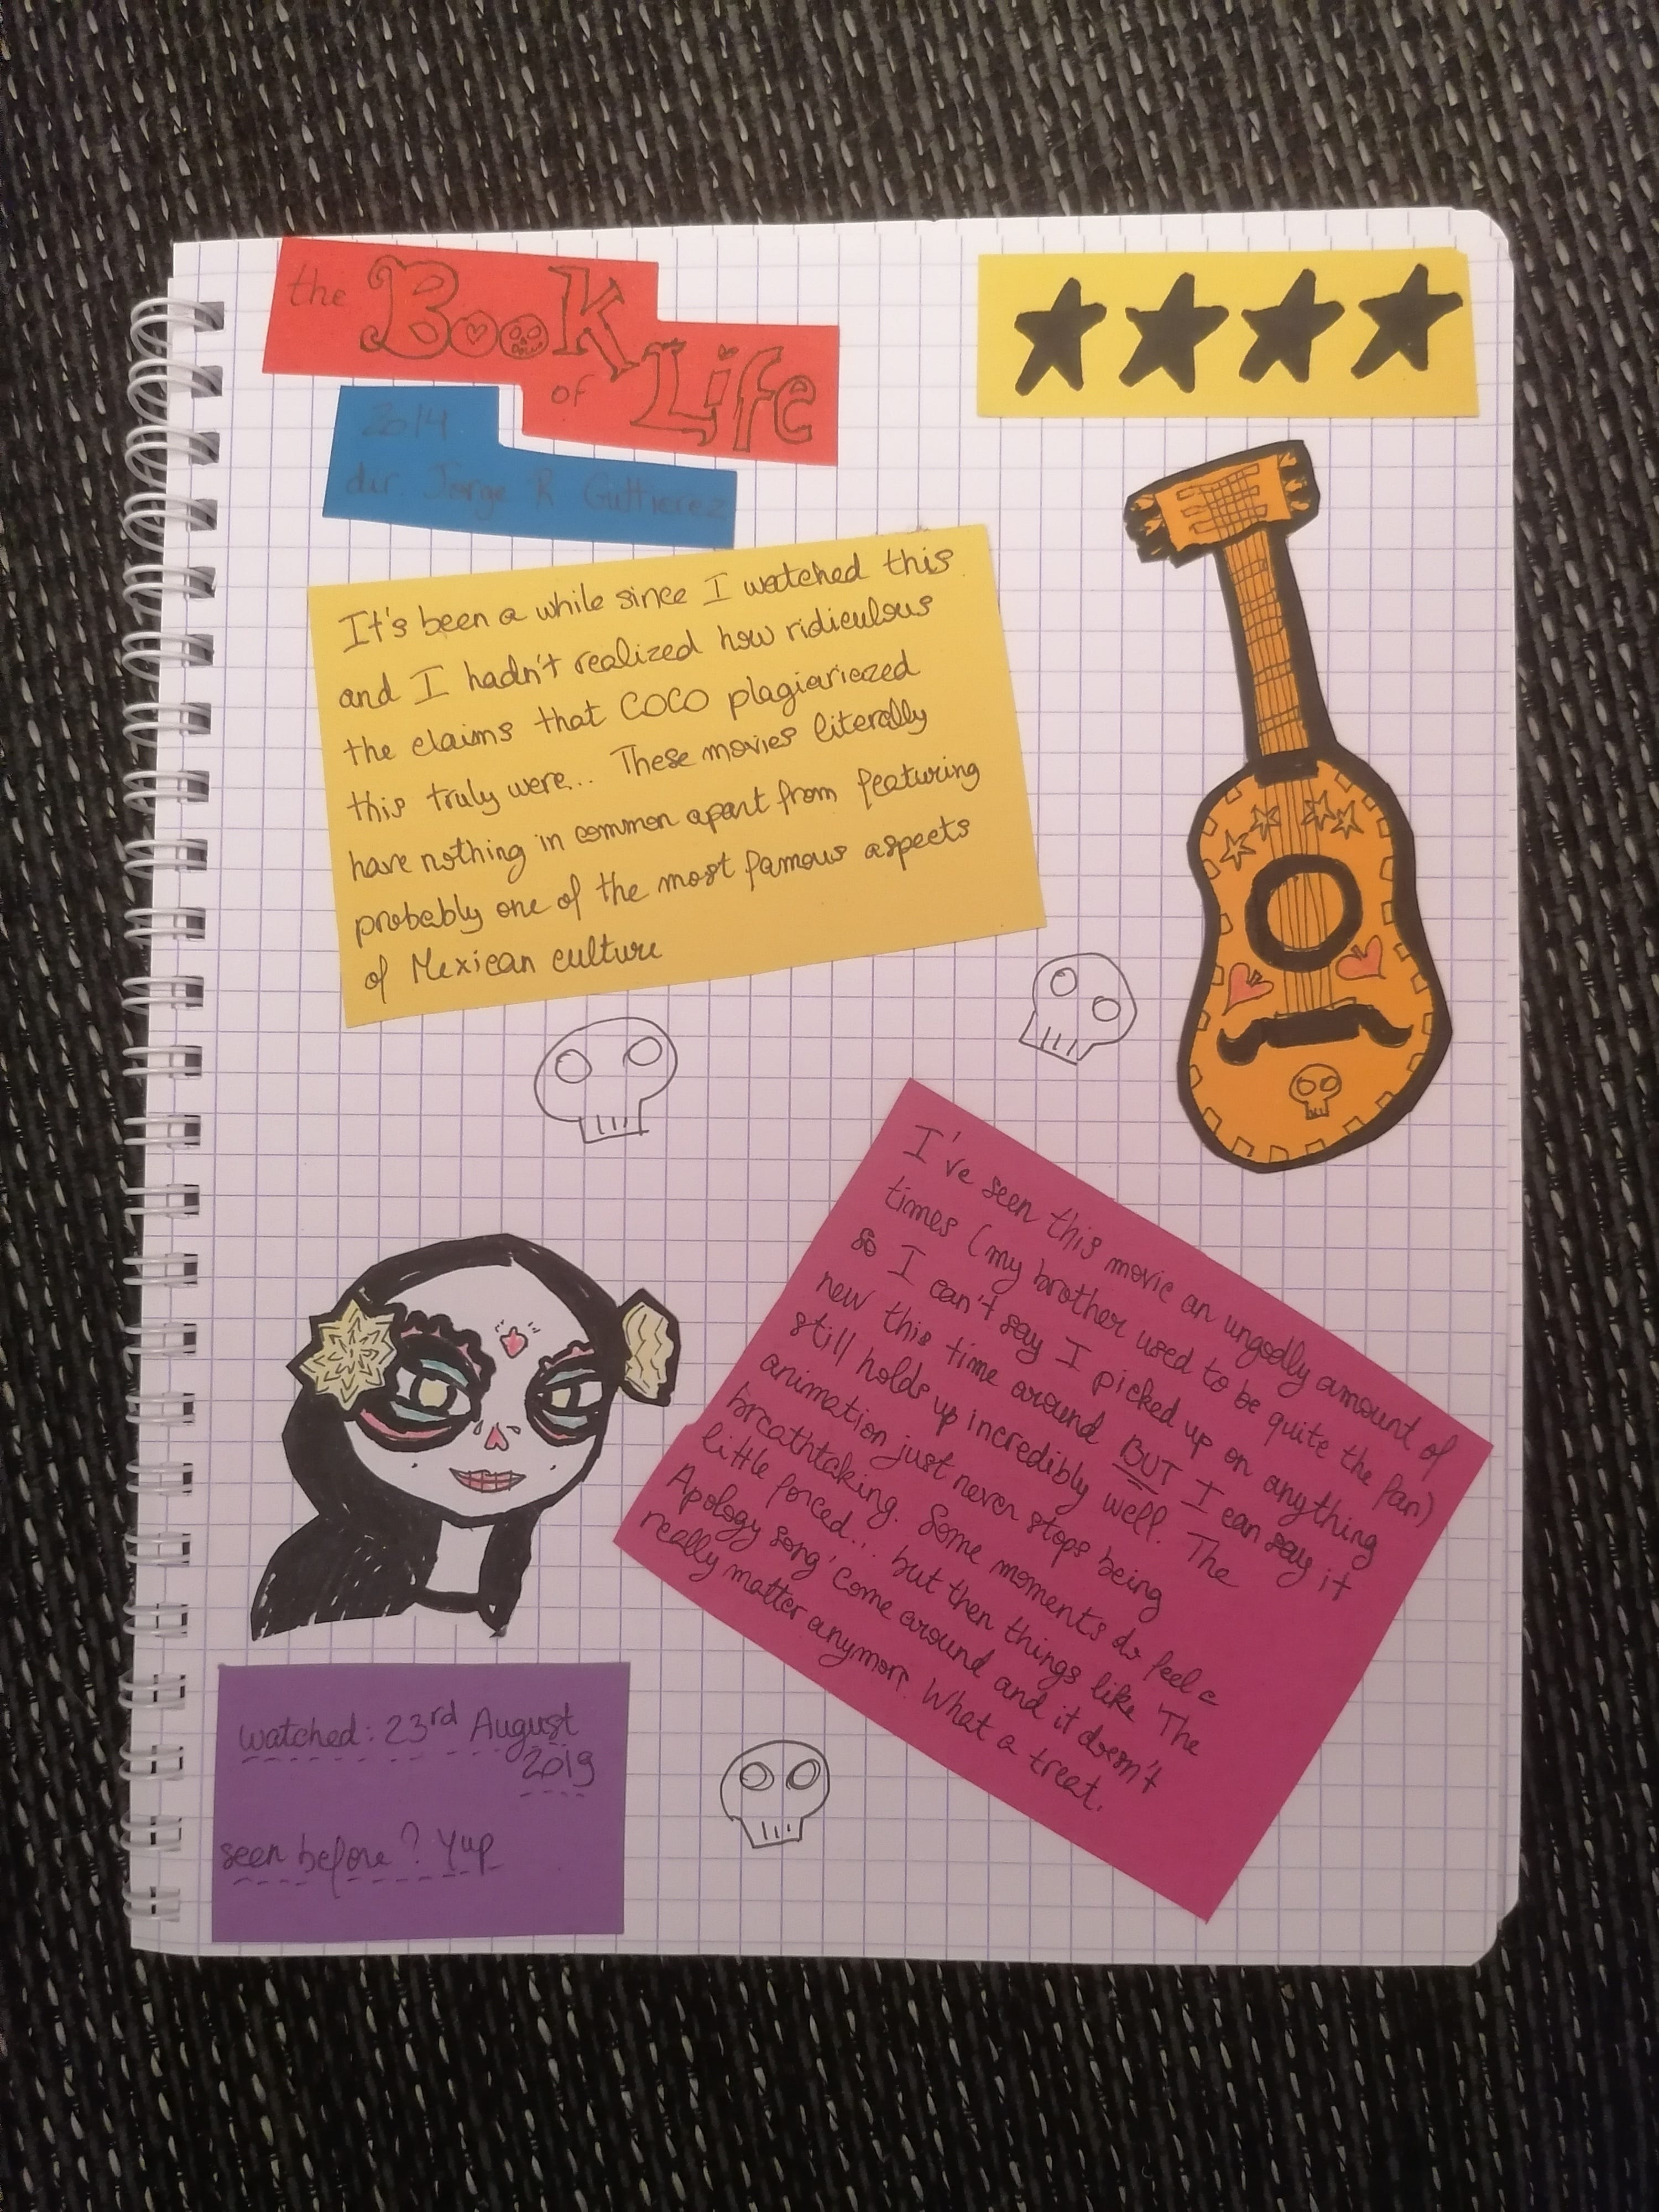 the Book
of Life
2014
dir. Jorge R Guttierez
It's been a while since I watched this
and I hadn't realized how ridiculous
the claims that COCO plagiariezed
this truly were... These movies literally
have nothing in common apart from featuring
probably one of the most famous aspects
of Mexican culture
I've seen this movie an ungodly amount of
times (my brother used to be quite the fan)
so I can't say I picked up on anything
new this time around BUT I can say it
still holds up incredibly well. The
animation just never stops being
breathtaking. Some moments do feel a
little forced... but then things like 'The
Apology song' come around and it doesn't
really matter anymore. What a treat.
watched: 23rd August
2019
seen before? Yup